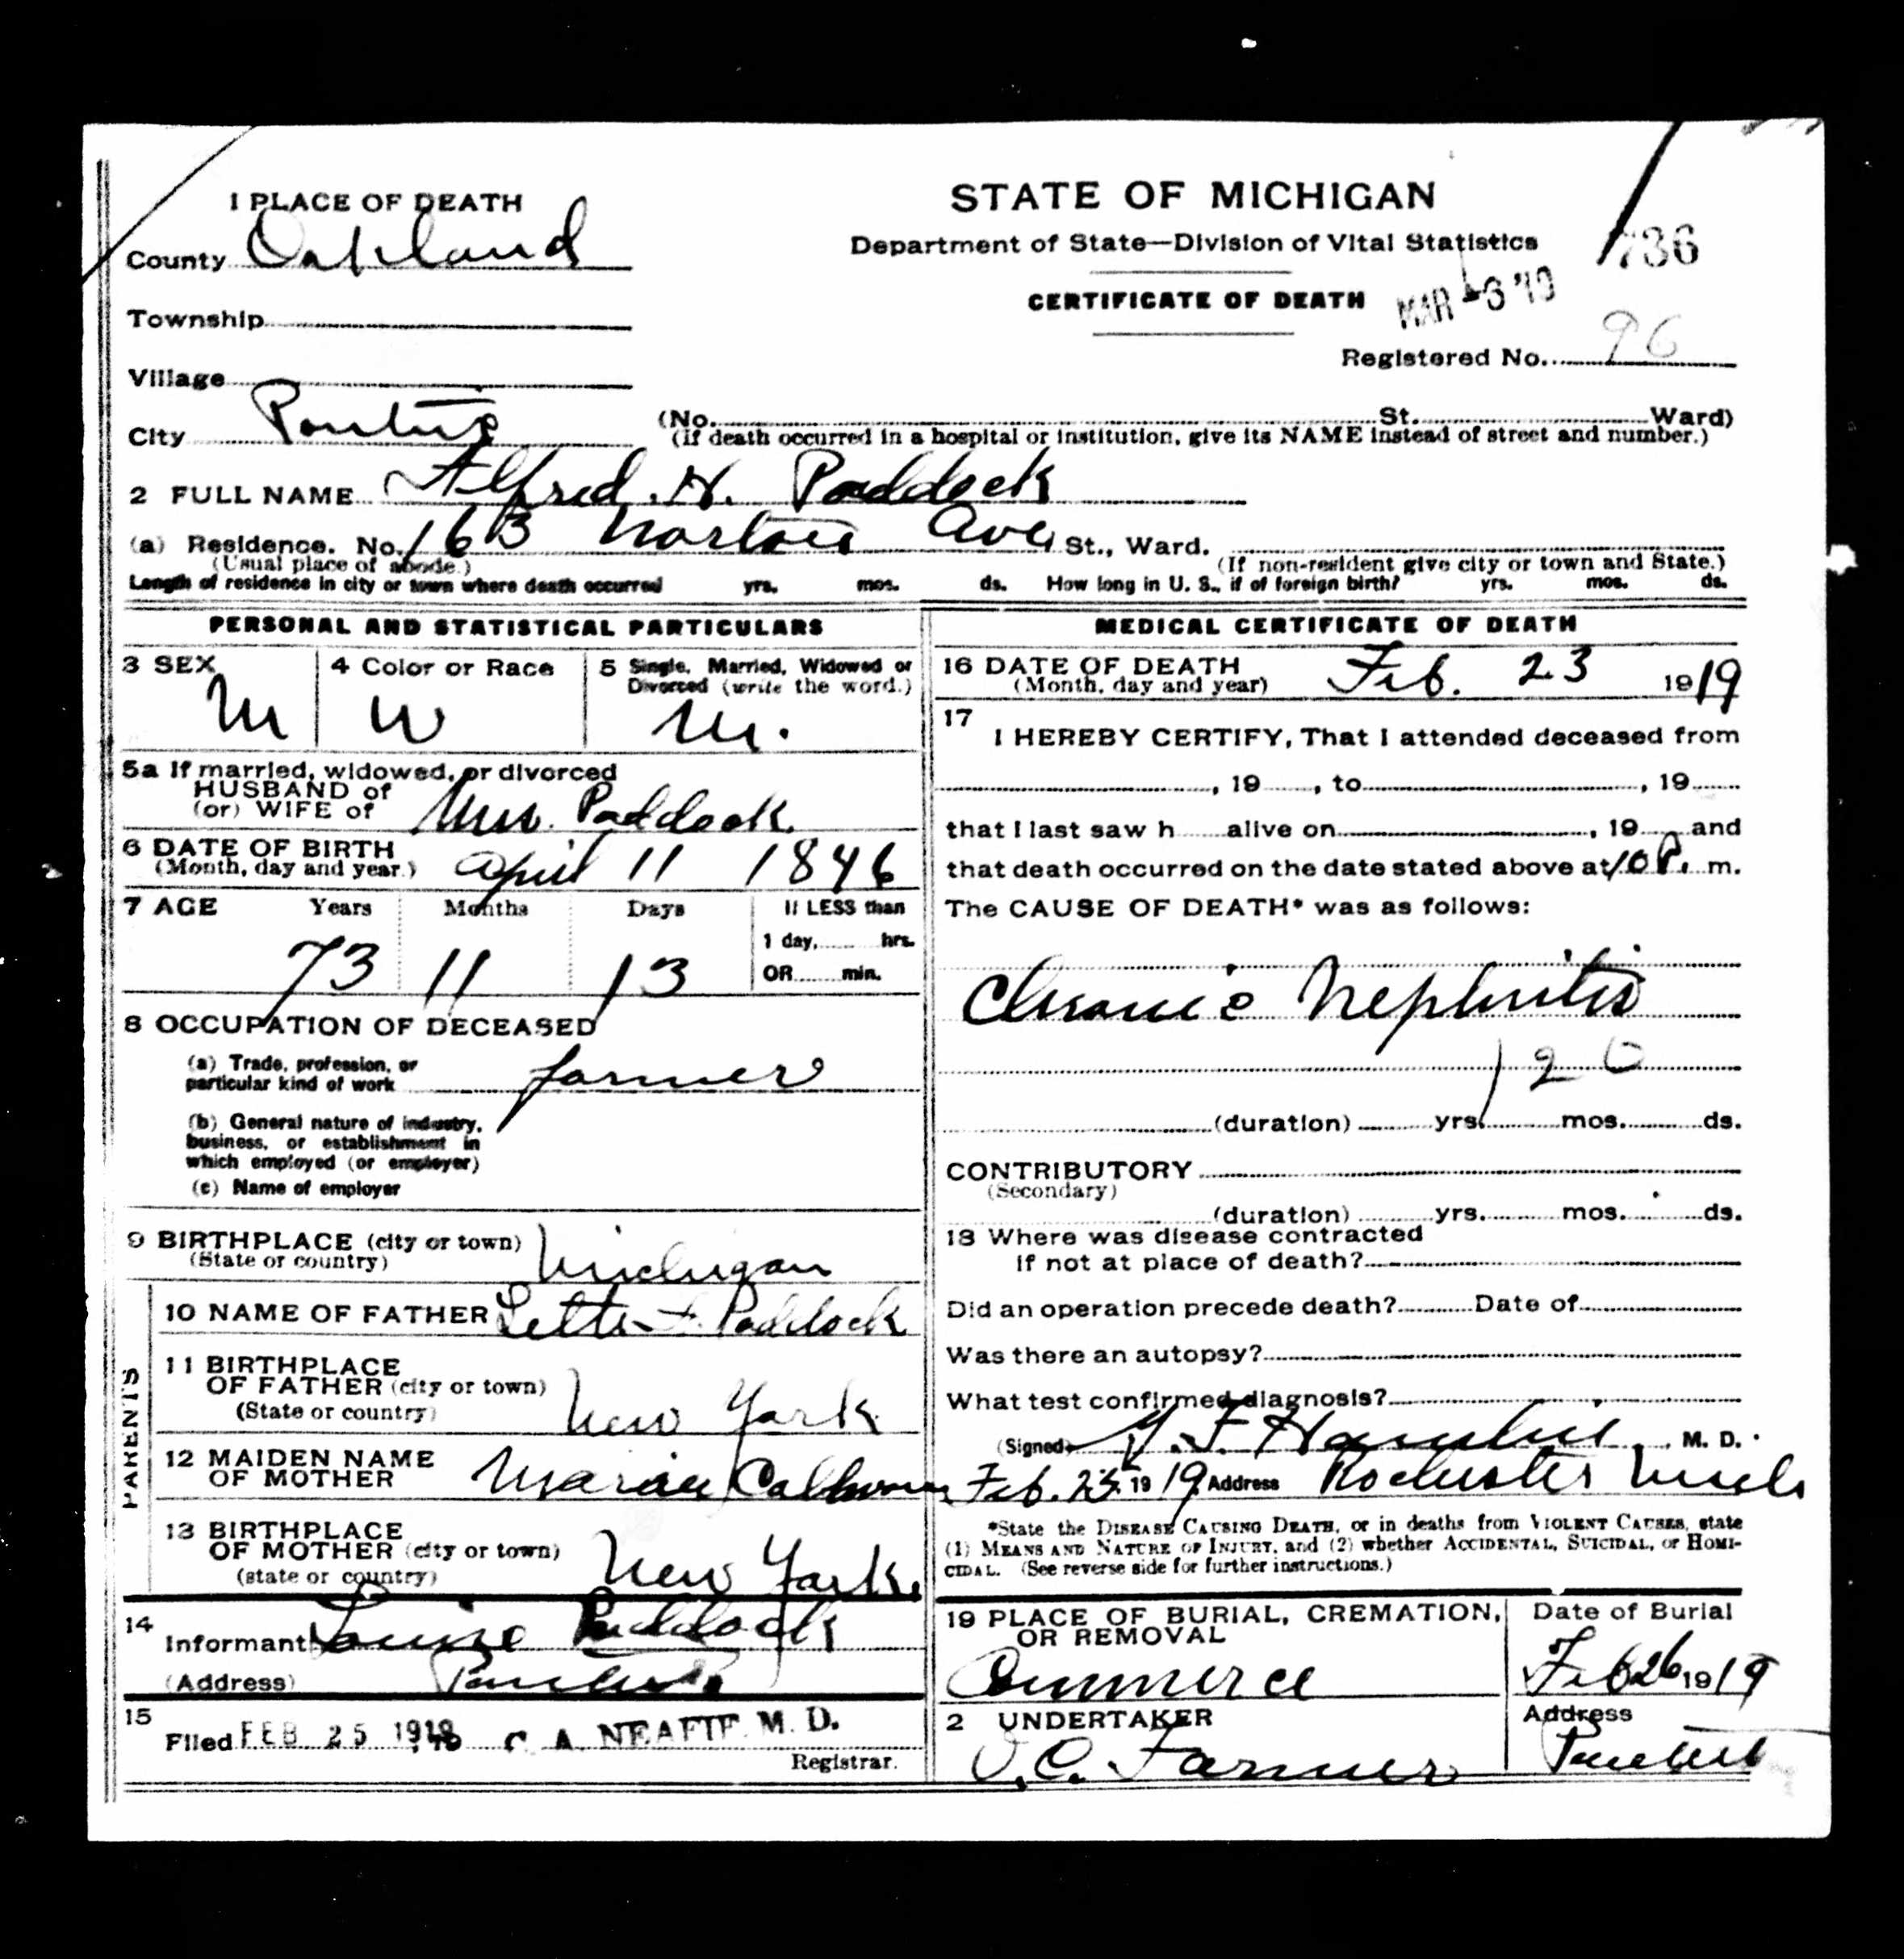 1 PLACE OF DEATH
County Oakland
Township
Village
City Pontiac
STATE OF MICHIGAN
Department of State—Division of Vital Statistics
CERTIFICATE OF DEATH
MAR 3 '19
736
Registered No. 96
(No. St. Ward)
(If death occurred in a hospital or institution, give its NAME instead of street and number.)
2 FULL NAME Alfred. H. Paddock
(a) Residence. No. 163 Norton Ave St., Ward.
(Usual place of abode.) (If non-resident give city or town and State.)
Length of residence in city or town where death occurred yrs. mos. ds. How long in U. S., if of foreign birth? yrs. mos. ds.
PERSONAL AND STATISTICAL PARTICULARS
3 SEX M
4 Color or Race W
5 Single, Married, Widowed or
Divorced (write the word.)
M.
5a If married, widowed, or divorced
HUSBAND of
(or) WIFE of Mrs. Paddock
6 DATE OF BIRTH
(Month, day and year.) April 11 1846
7 AGE Years Months Days If LESS than
1 day, hrs.
73 11 13 OR min.
8 OCCUPATION OF DECEASED
(a) Trade, profession, or
particular kind of work farmer
(b) General nature of industry,
business, or establishment in
which employed (or employer)
(c) Name of employer
9 BIRTHPLACE (city or town)
(State or country) Michigan
PARENTS
10 NAME OF FATHER Paddock
11 BIRTHPLACE
OF FATHER (city or town)
(State or country) New York
12 MAIDEN NAME
OF MOTHER Calhoun
13 BIRTHPLACE
OF MOTHER (city or town)
(state or country) New York.
14
Informant Louise Paddock
(Address) Pontiac
15
Filed FEB 25 1918 C. A. NEAFIE M. D.
Registrar.
MEDICAL CERTIFICATE OF DEATH
16 DATE OF DEATH
(Month, day and year) Feb. 23 1919
17
I HEREBY CERTIFY, That I attended deceased from
, 19 , to , 19
that I last saw h alive on , 19 and
that death occurred on the date stated above at 10 P. m.
The CAUSE OF DEATH* was as follows:
Chronic Nephritis
120
(duration) yrs. mos. ds.
CONTRIBUTORY
(Secondary)
(duration) yrs. mos. ds.
18 Where was disease contracted
if not at place of death?
Did an operation precede death? Date of
Was there an autopsy?
What test confirmed diagnosis?
(Signed) M. D.
Feb. 25, 1919 Address Rochester Mich
*State the DISEASE CAUSING DEATH, or in deaths from VIOLENT CAUSES, state
(1) MEANS AND NATURE OF INJURY, and (2) whether ACCIDENTAL, SUICIDAL, or HOMI-
CIDAL. (See reverse side for further instructions.)
19 PLACE OF BURIAL, CREMATION,
OR REMOVAL
Commerce
Date of Burial
Feb 26 1919
2 UNDERTAKER
O. C. Farmer
Address
Pontiac